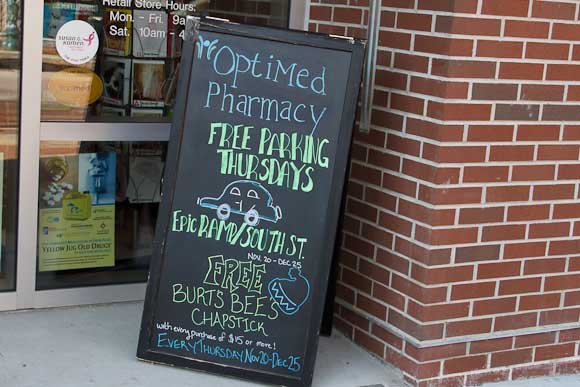 Retail Store Hours:
Mon. - Fri. 9a
Sat. 10am - 4
susan G.
komen
OptiMed
Pharmacy
FREE PARKING
THURSDAYS
EPIC RAMP/SOUTH ST.
NOV. 20 - DEC. 25
FREE
BURTS BEES
CHAPSTICK
with every purchase of $15 or more!
EVERY THURSDAY NOV 20 - DEC 25
YELLOW JUG OLD DRUGS